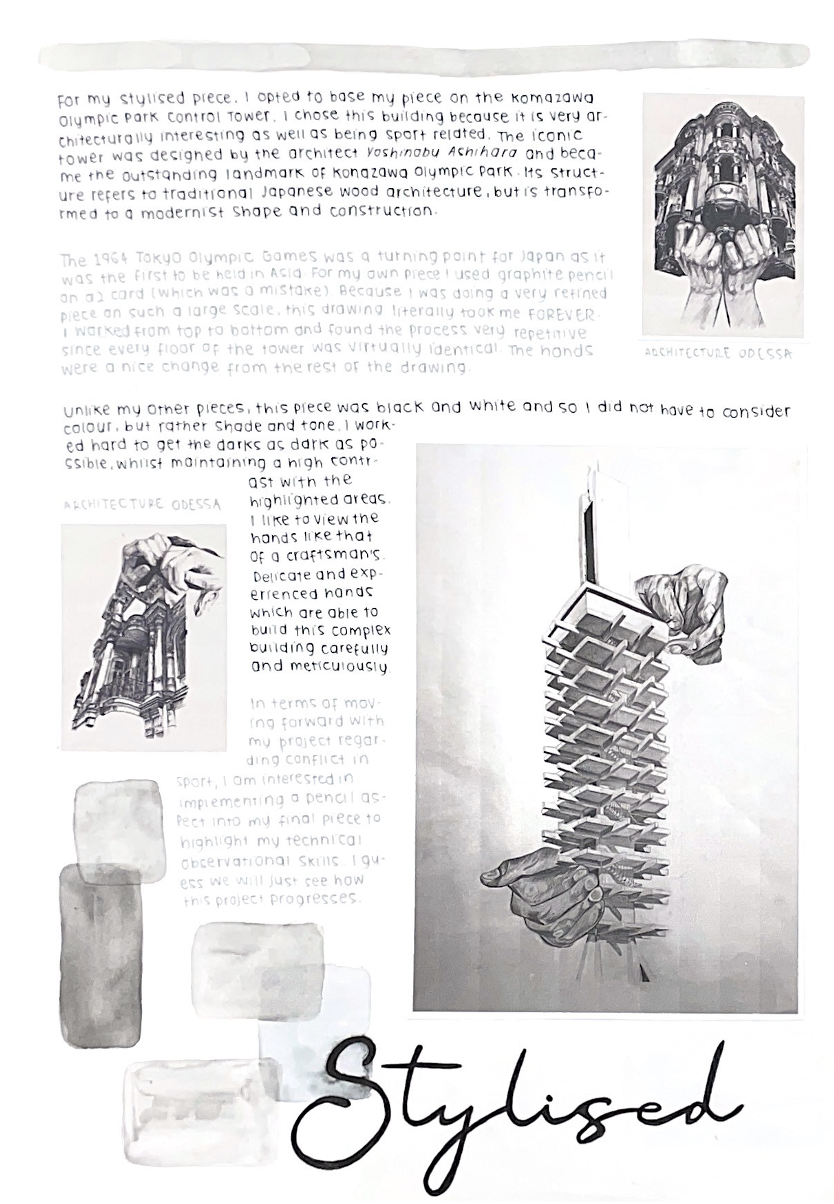 For my stylised piece, I opted to base my piece on the Komazawa
Olympic Park Control Tower. I chose this building because it is very ar-
chitecturally interesting as well as being sport related. The iconic
tower was designed by the architect Yoshinobu Ashihara and beca-
me the outstanding landmark of Konazawa Olympic Park. Its struct-
ure refers to traditional Japanese wood architecture, but is transfo-
rmed to a modernist shape and construction.
The 1964 Tokyo Olympic Games was a turning point for Japan as it
was the first to be held in Asia. For my own piece I used graphite pencil
on a2 card (which was a mistake). Because I was doing a very refined
piece on such a large scale, this drawing literally took me FOREVER.
I worked from top to bottom and found the process very repetitive
since every floor of the tower was virtually identical. The hands
were a nice change from the rest of the drawing.
ARCHITECTURE ODESSA
Unlike my other pieces, this piece was black and white and so I did not have to consider
colour, but rather shade and tone. I work-
ed hard to get the darks as dark as po-
ssible, whilst maintaining a high contr-
ast with the
highlighted areas.
I like to view the
hands like that
of a craftsman's.
Delicate and exp-
erienced hands
which are able to
build this complex
building carefully
and meticulously.
ARCHITECTURE ODESSA
In terms of mov-
ing forward with
my project regar-
ding conflict in
sport, I am interested in
implementing a pencil as-
pect into my final piece to
highlight my technical
observational skills. I gu-
ess we will just see how
this project progresses.
Stylised